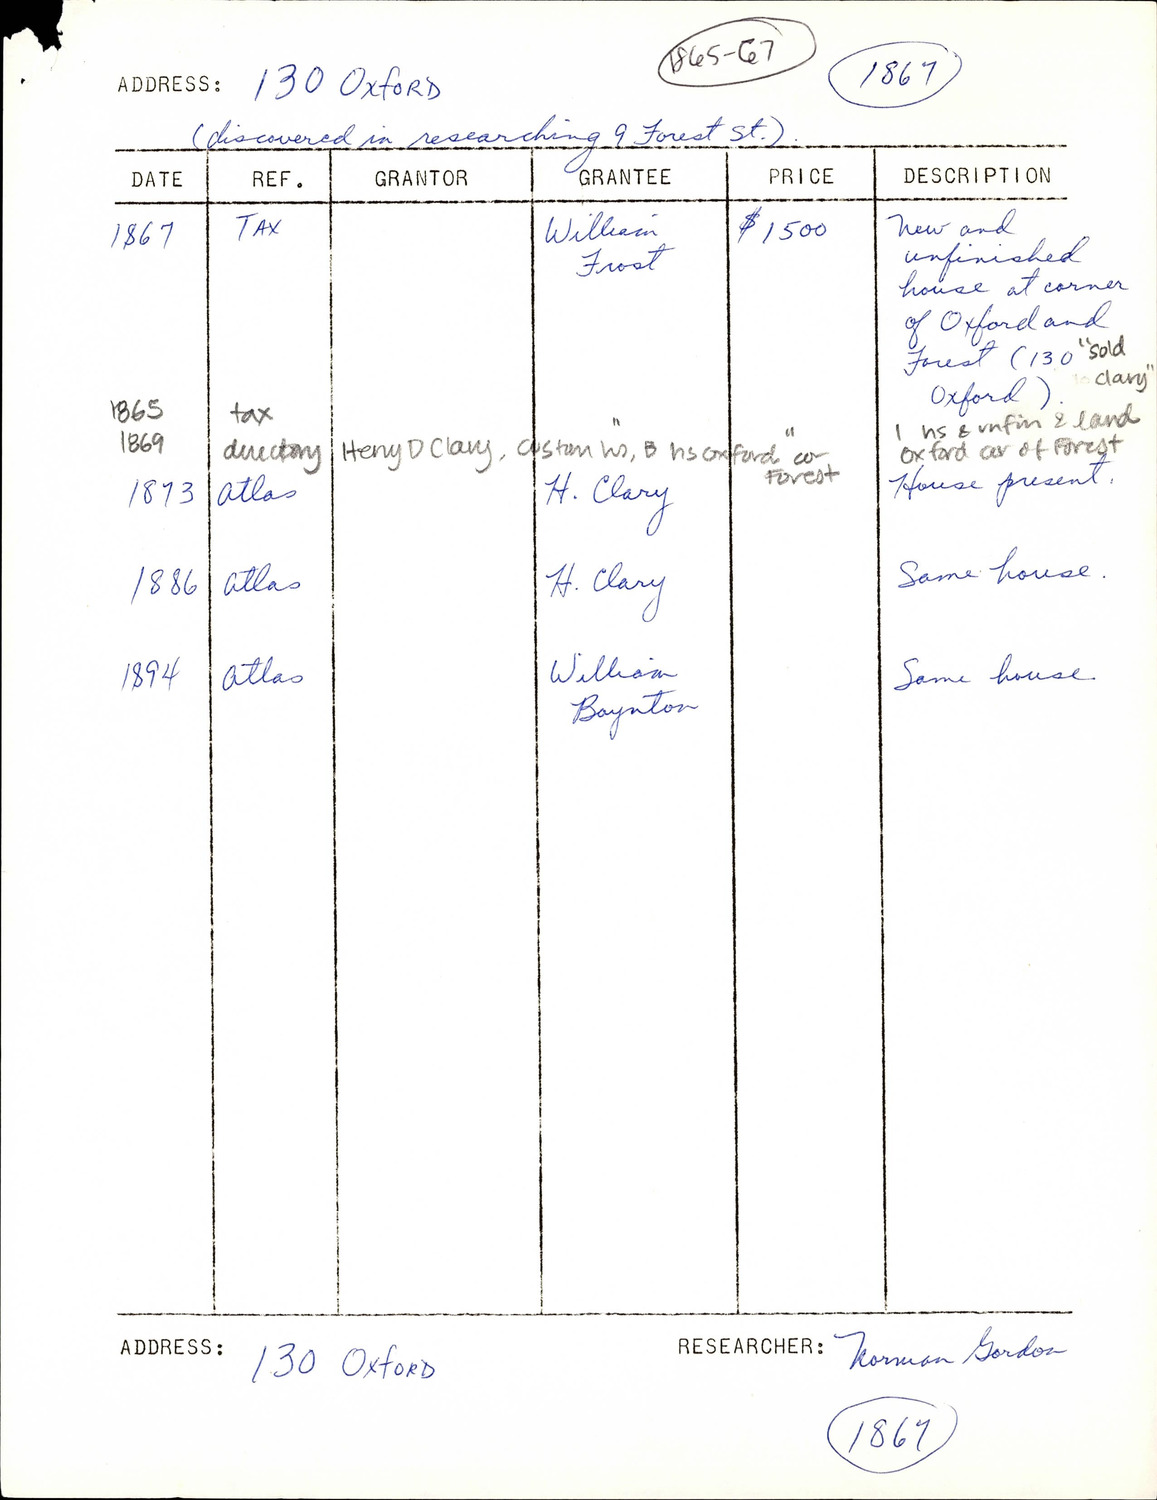 1865-67
1867
ADDRESS: 130 OXFORD
(discovered in researching 9 Forest St.).
DATE REF. GRANTOR GRANTEE PRICE DESCRIPTION
1867 TAX William Frost $1500 New and
unfinished
house at corner
of Oxford and
Forest (130 "sold
Oxford). clary"
1865 tax 1 hs & unfin & land
Oxford cor of Forest
1869 directory Henry D Clary, "custom hs, B hs oxford" cor
Forest
1873 atlas H. Clary House present.
1886 atlas H. Clary Same house.
1894 atlas William Boynton Same house.
ADDRESS: 130 OXFORD RESEARCHER: Norman Gordon
1867